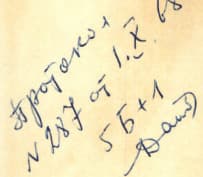 Протокол
N 287 от 1.X. 68
5Б+1